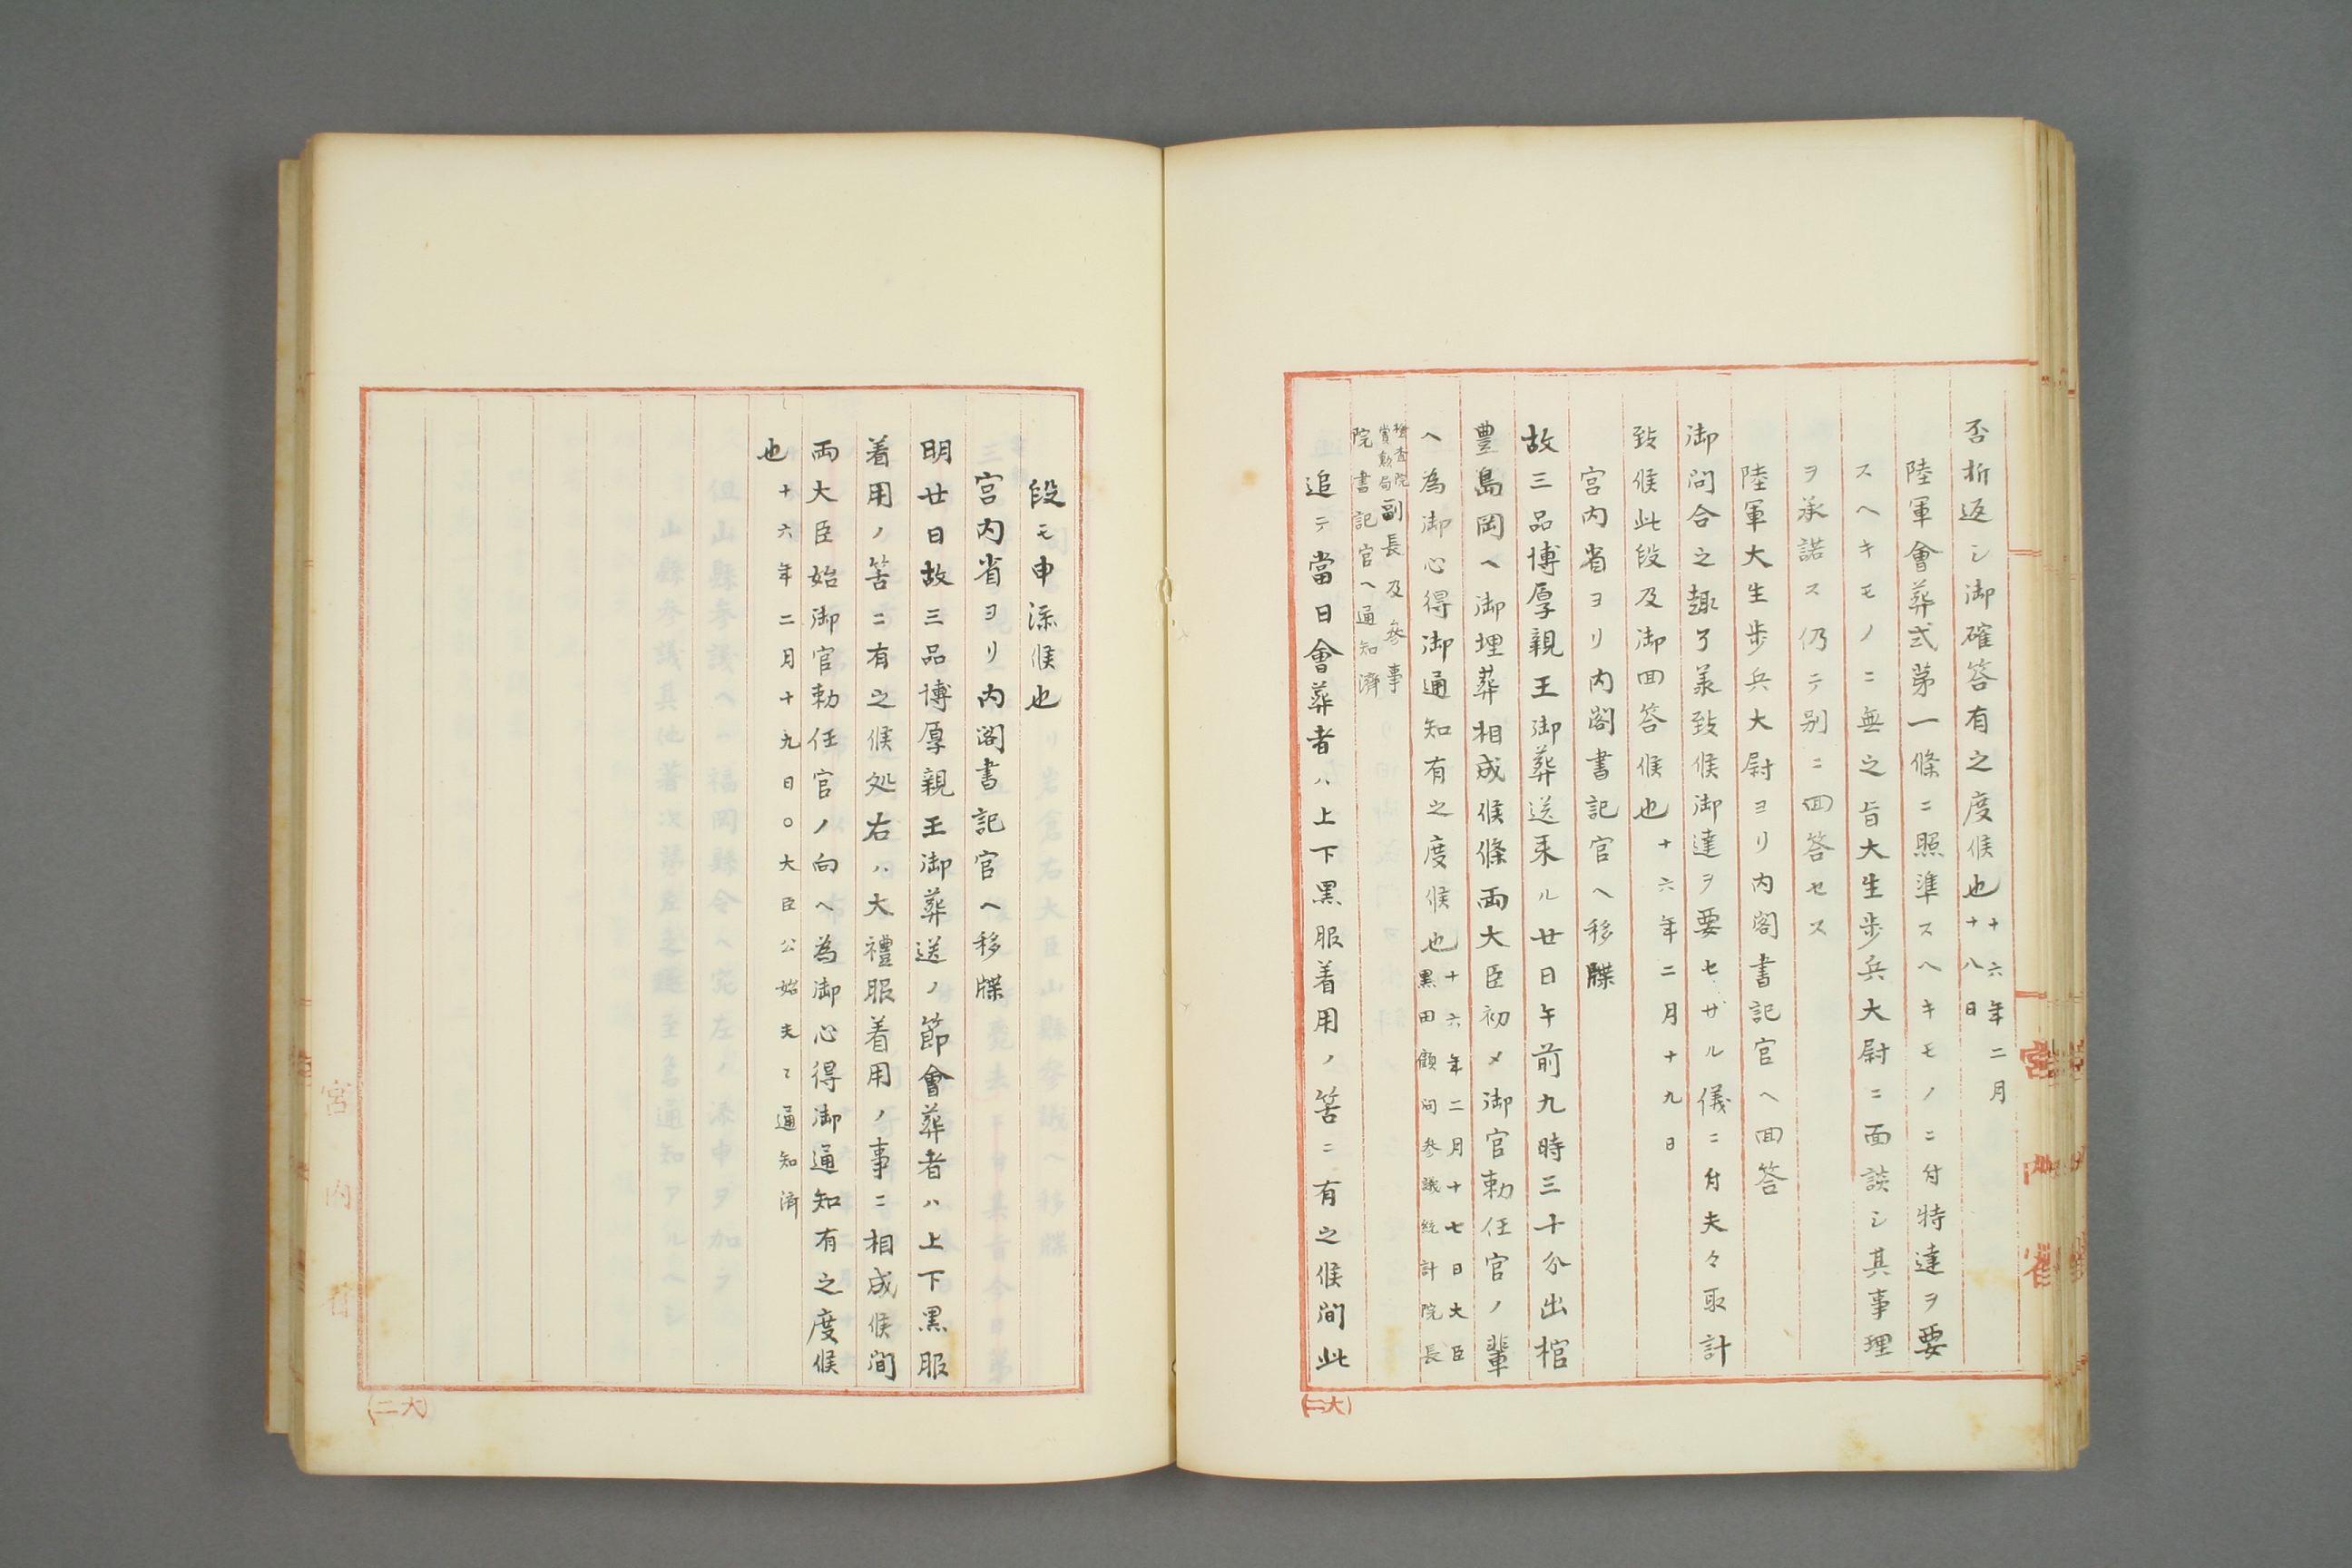 否折返シ御確答有之度候也十六年二月十八日
陸軍會葬式第一條ニ照準スヘキモノニ付特達ヲ要
スヘキモノニ無之旨大生歩兵大尉ニ面談シ其事理
ヲ承諾ス仍テ別ニ回答セス
陸軍大生歩兵大尉ヨリ内閣書記官ヘ回答
御問合之趣了承致候御達ヲ要セザル儀ニ付夫々取計
致候此段及御回答候也十六年二月十九日
宮内省ヨリ内閣書記官ヘ移牒
故三品博厚親王御葬送来ル廿日午前九時三十分出棺
豊島岡ヘ御埋葬相成候條両大臣初メ御官勅任官ノ輩
ヘ為御心得御通知有之度候也十六年二月十七日大臣
黒田顧問参議統計院長
検査院賞勲局副長及参事
院書記官ヘ通知済
追テ當日會葬者ハ上下黒服着用ノ筈ニ有之候間此
宮内省
(二大)
段モ申添候也
宮内省ヨリ内閣書記官ヘ移牒
明廿日故三品博厚親王御葬送ノ節會葬者ハ上下黒服
着用ノ筈ニ有之候処右ハ大禮服着用ノ事ニ相成候間
両大臣始御官勅任官ノ向ヘ為御心得御通知有之度候
也十六年二月十九日○大臣公始夫々通知済
宮内省
(二大)